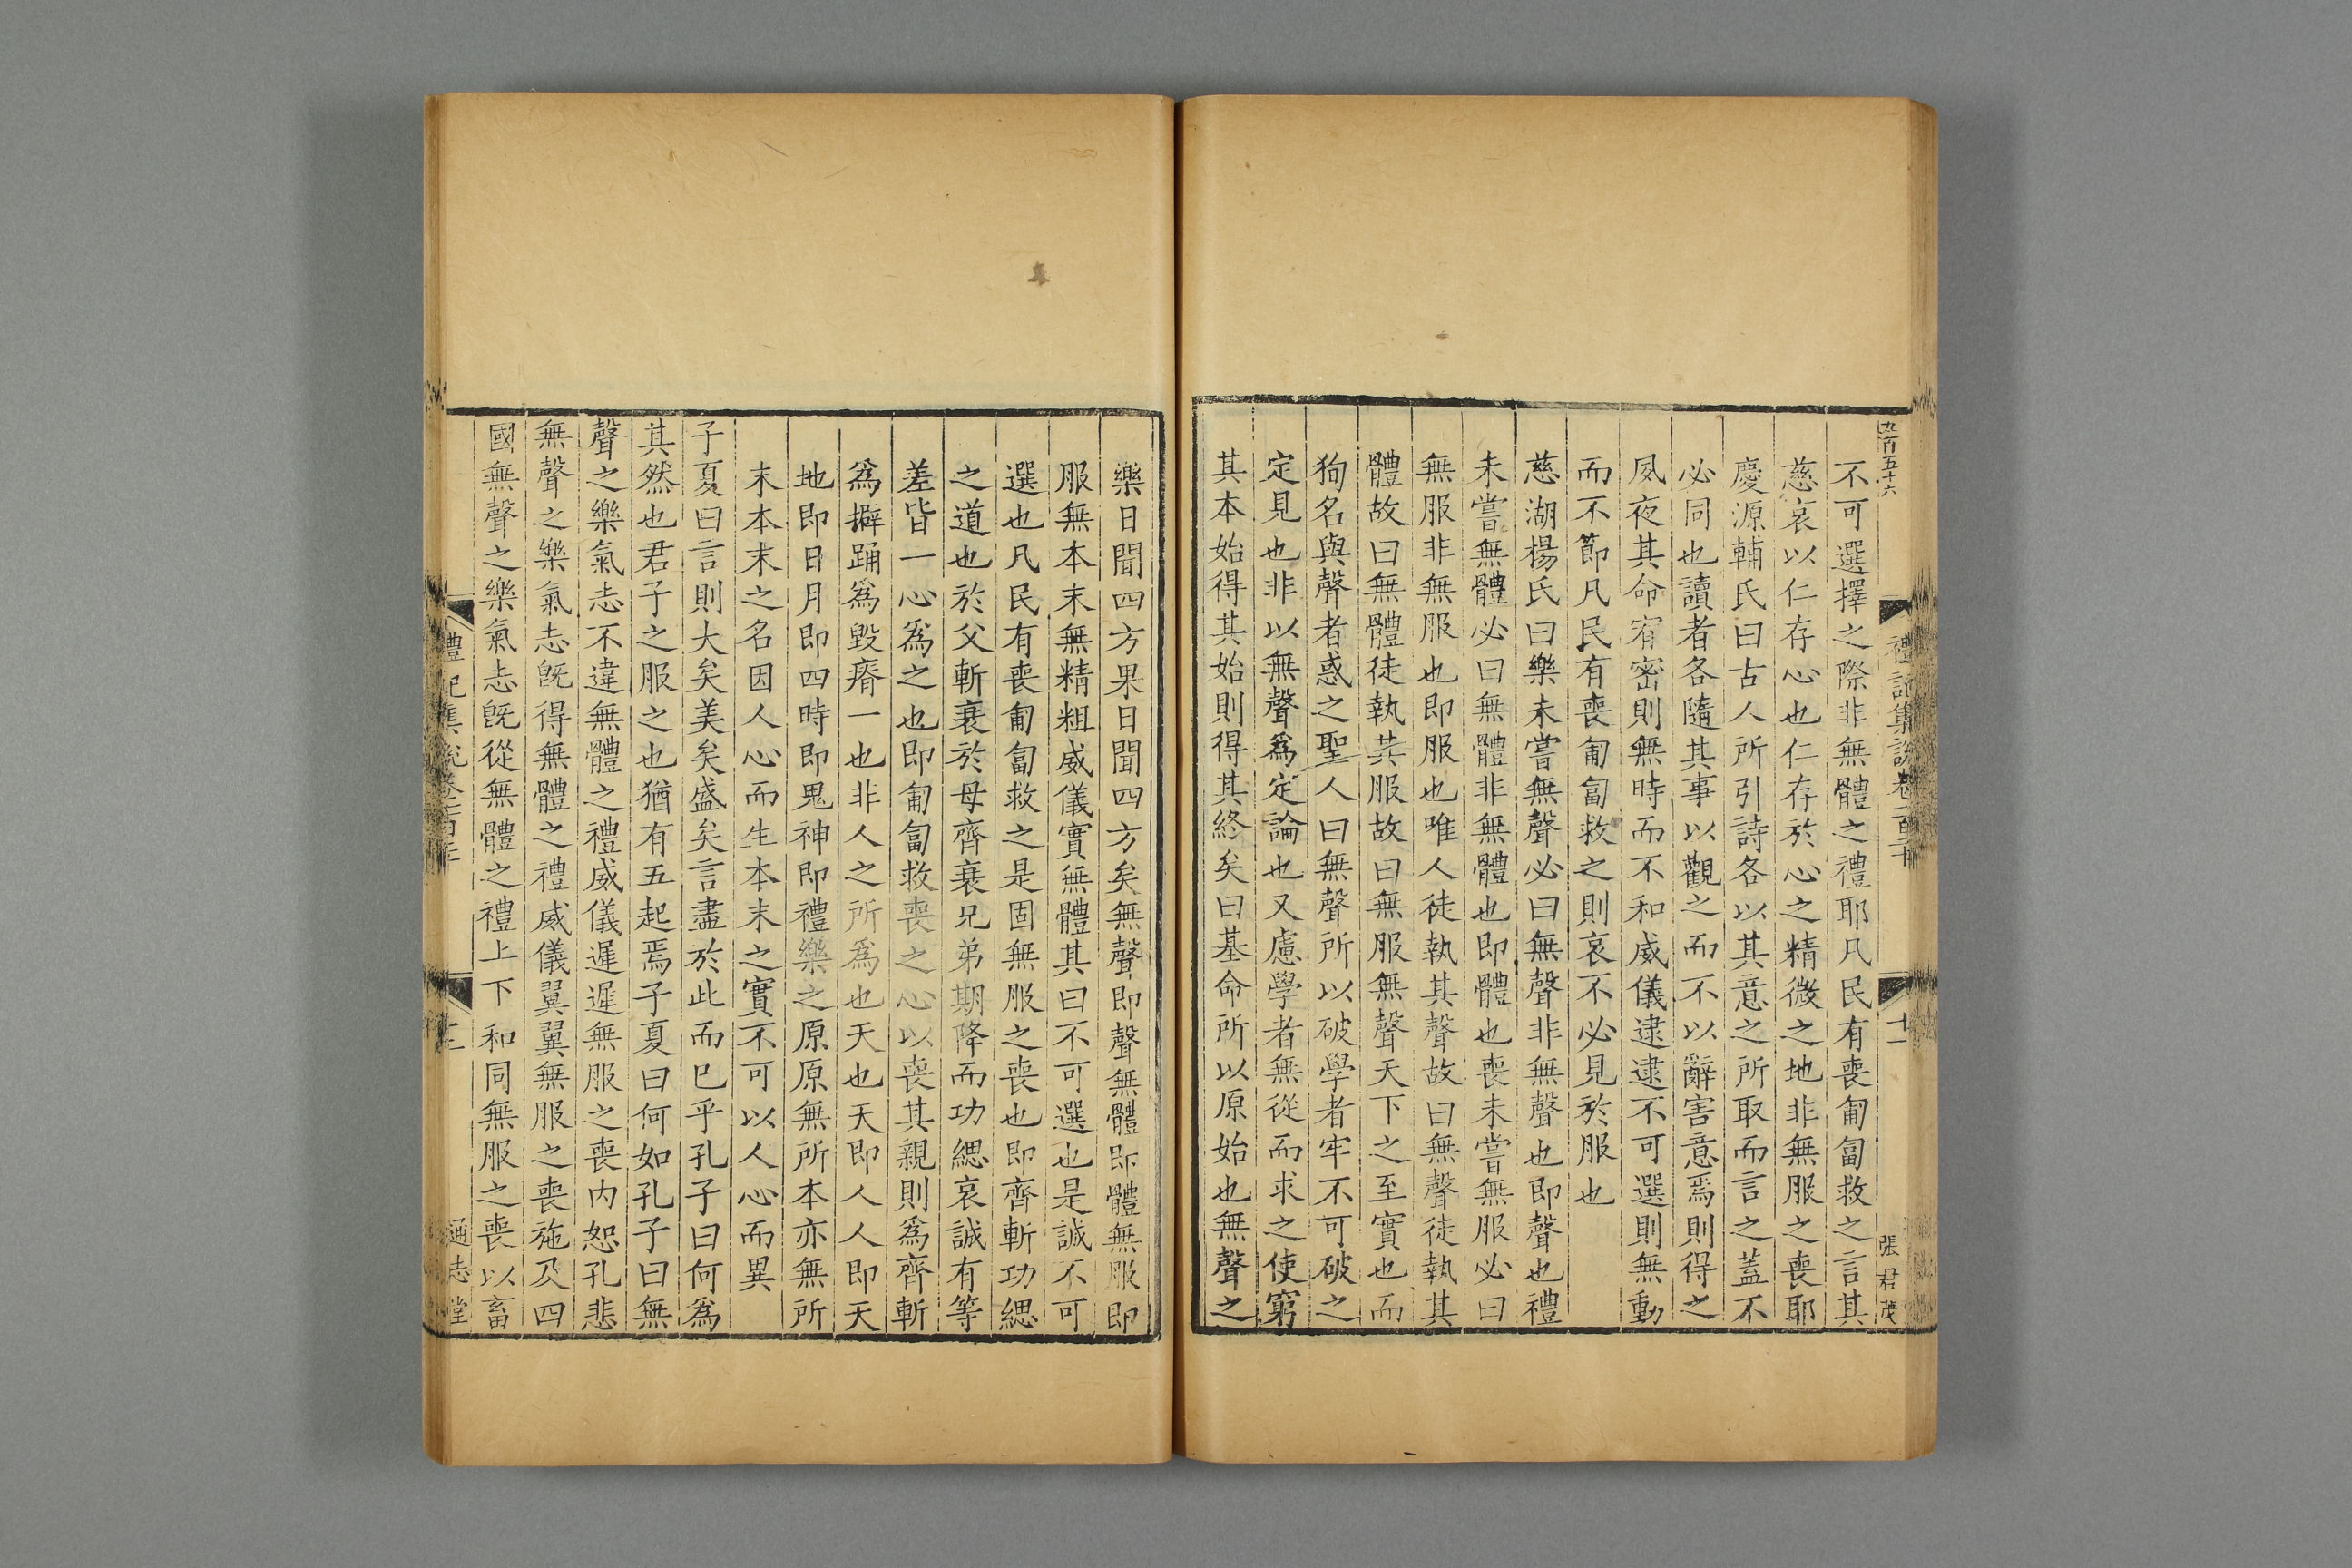 九百五十六
禮記集說卷一百二十
十一
張君茂
不可選擇之際非無體之禮耶凡民有喪匍匐救之言其
慈哀以仁存心也仁存於心之精微之地非無服之喪耶
慶源輔氏曰古人所引詩各以其意之所取而言之蓋不
必同也讀者各隨其事以觀之而不以辭害意焉則得之
夙夜其命宥密則無時而不和威儀逮逮不可選則無動
而不節凡民有喪匍匐救之則哀不必見於服也
慈湖楊氏曰樂未嘗無聲必曰無聲非無聲也即聲也禮
未嘗無體必曰無體非無體也即體也喪未嘗無服必曰
無服非無服也即服也唯人徒執其聲故曰無聲徒執其
體故曰無體徒執其服故曰無服無聲天下之至實也而
狥名與聲者惑之聖人曰無聲所以破學者牢不可破之
定見也非以無聲爲定論也又慮學者無從而求之使窮
其本始得其始則得其終矣曰基命所以原始也無聲之
樂日聞四方果日聞四方矣無聲即聲無體即體無服即
服無本末無精粗威儀實無體其曰不可選也是誠不可
選也凡民有喪匍匐救之是固無服之喪也即齊斬功緦
之道也於父斬衰於母齊衰兄弟期降而功緦哀誠有等
差皆一心爲之也即匍匐救喪之心以喪其親則爲齊斬
爲擗踊爲毀瘠一也非人之所爲也天也天即人人即天
地即日月即四時即鬼神即禮樂之原原無所本亦無所
末本末之名因人心而生本末之實不可以人心而異
子夏曰言則大矣美矣盛矣言盡於此而已乎孔子曰何爲
其然也君子之服之也猶有五起焉子夏曰何如孔子曰無
聲之樂氣志不違無體之禮威儀遲遲無服之喪内恕孔悲
無聲之樂氣志旣得無體之禮威儀翼翼無服之喪施及四
國無聲之樂氣志旣從無體之禮上下和同無服之喪以畜
禮記集說卷一百二十
通志堂